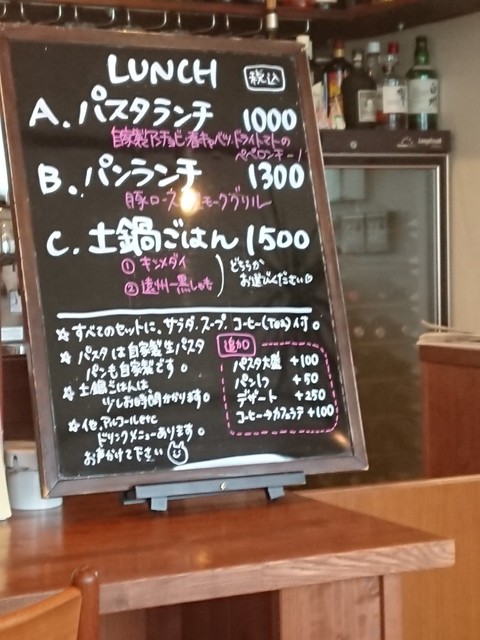 LUNCH 税込
A. パスタランチ 1000
自家製アンチョビ、春キャベツ、ドライトマトの
ペペロンチーノ
B. パンランチ 1300
豚ロース スモークグリル
C. 土鍋ごはん 1500
① キンメダイ
② 遠州一黒しゃも
どちらか
お選びください
☆ すべてのセットに、サラダ、スープ、コーヒー(Tea)付。
☆ パスタは自家製生パスタ
パンも自家製です。
☆ 土鍋ごはんは
少しお時間かかります。
☆ 他、アルコールetc
ドリンクメニューあります。
お声かけて下さい
追加
パスタ大盛 +100
パン1つ +50
デザート +250
コーヒー→カフェラテ +100